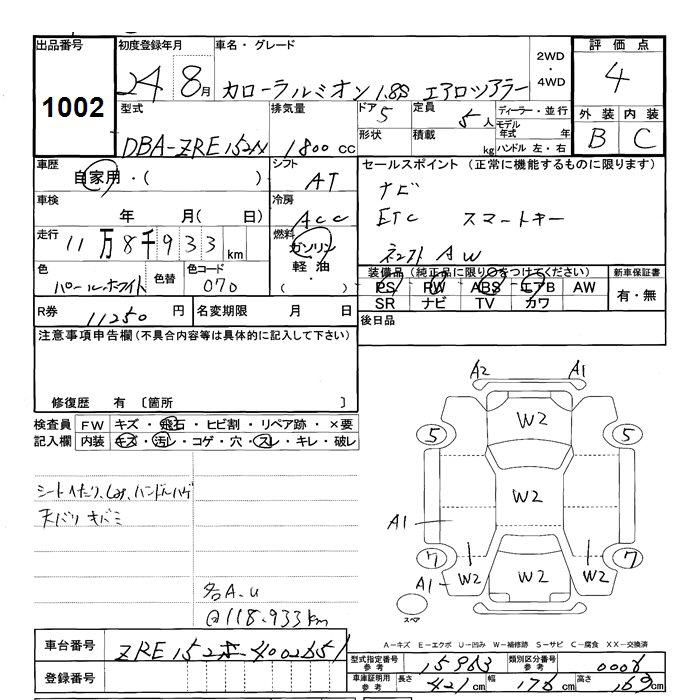 出品番号 初度登録年月 車名・グレード 2WD・4WD 評価点
1002 24 8月 カローラルミオン 1.8S エアロツアラー 4
型式 排気量 ドア 5 定員 5人 ディーラー・並行 外装 内装
DBA-ZRE152N 1800cc 形状 積載 kg モデル年式 年 ハンドル 左・右 B C
車歴 シフト セールスポイント (正常に機能するものに限ります)
自家用・( ) AT ナビ
車検 冷房 ETC スマートキー
年 月( 日) ACC
走行 燃料 AW
11万8千933km ガソリン 軽油・( )
装備品(純正品に限り○をつけてください) 新車保証書
色 色替 色コード PS PW ABS エアB AW 有・無
パールホワイト 070 SR ナビ TV カワ
R券 11250円 名変期限 月 日 後日品
注意事項申告欄(不具合内容等は具体的に記入して下さい)
修復歴 有 〔箇所 〕
検査員 FW キズ・飛石・ヒビ割・リペア跡・×要
記入欄 内装 キズ・汚レ・コゲ・穴・スレ・キレ・破レ
シートヘタリ、シミ、ハンドルハゲ
天バリ キバミ
名A.U
@118.933km
A2 A1
W2
5 5
W2
A1
7 7
A1 W2 W2 W2
スペア
A-キズ E-エクボ U-凹み W-補修跡 S-サビ C-腐食 XX-交換済
車台番号 ZRE152-4002651
登録番号
型式指定番号 参考 15963 類別区分番号 参考 0006
車庫証明用 参考 長さ 421cm 幅 176cm 高さ 169cm